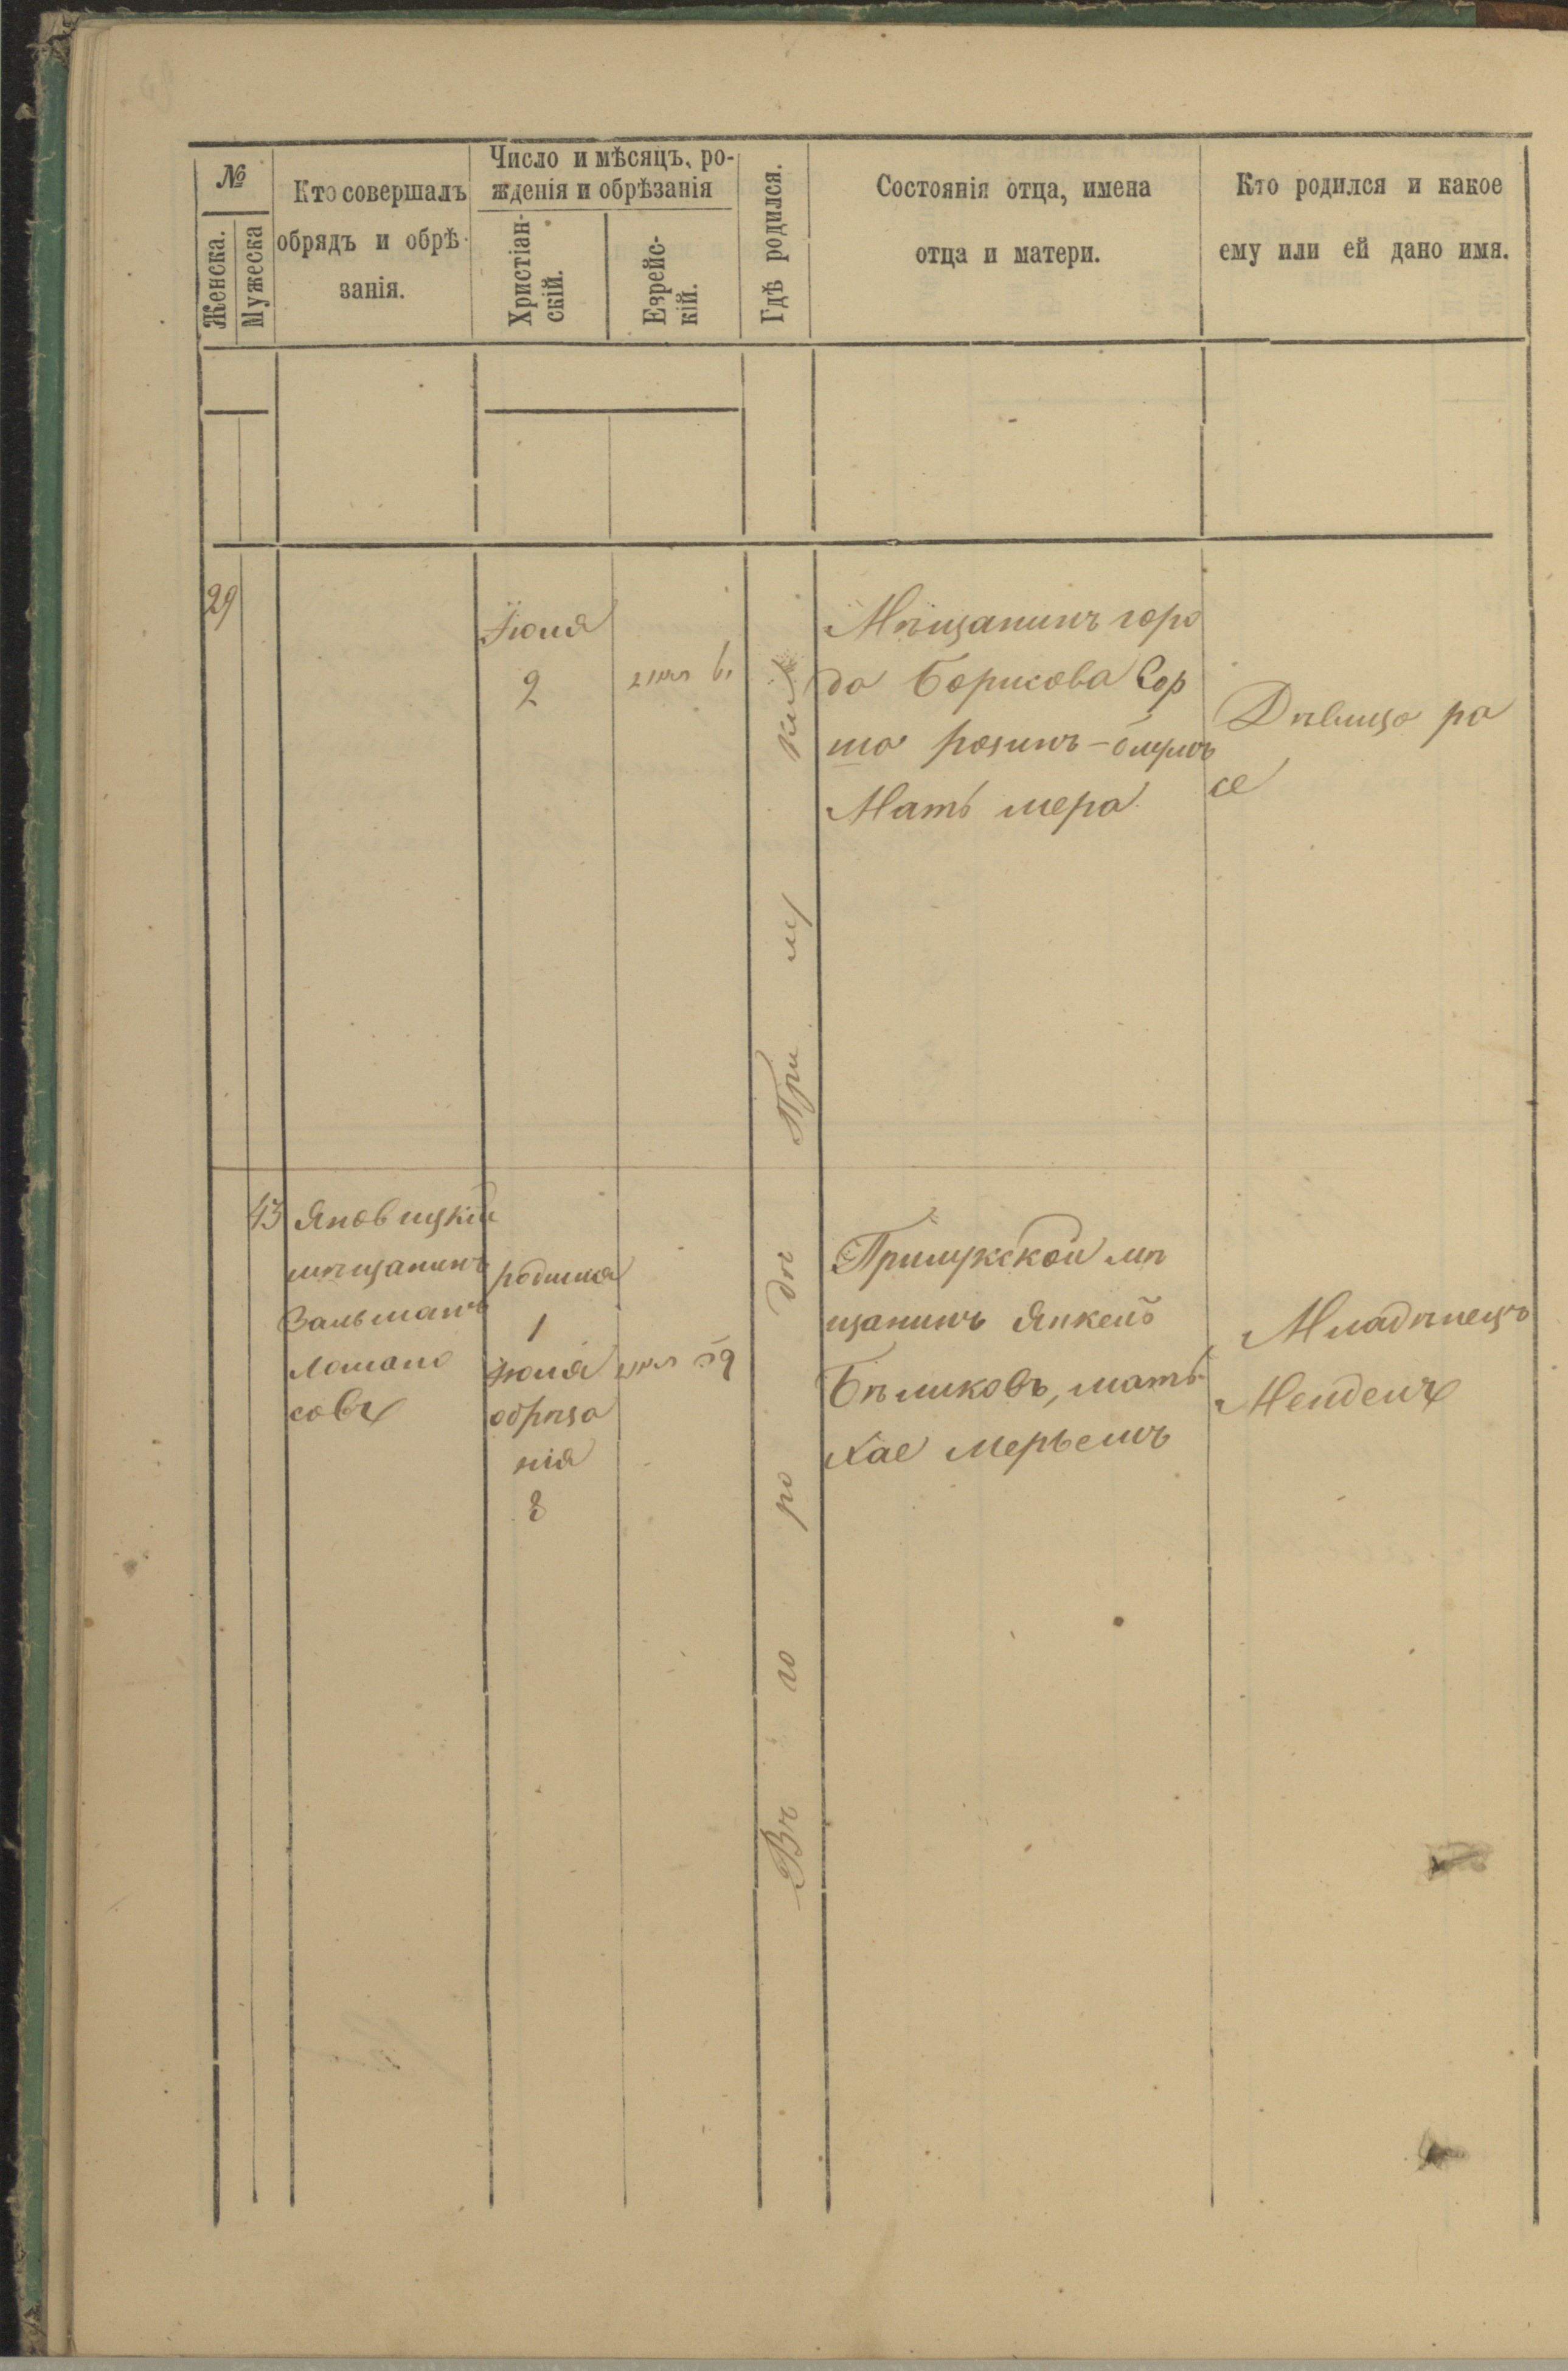 №
Женска.
Мужеска
Кто совершалъ
обрядъ и обрѣ-
занія.
Число и мѣсяцъ, ро-
жденія и обрѣзанія
Христіан-
скій.
Еврейс-
кій.
Гдѣ родился.
Состоянія отца, имена
отца и матери.
Кто родился и какое
ему или ей дано имя.
29
Іюля
2
Мѣщанинъ горо
да Борисова Сор
розинъ-блумъ
Мать мера
Дѣвица ра
се
Въ го ро дѣ При лу ки
43
Яновицкій
мѣщанинъ
Зальманъ
Ломано
совъ
родился
1
Іюля
обрѣза
нія
8
Прилукской мѣ
щанинъ Янкель
Бѣликовъ, мать
Хае Мерьемъ
Младѣнецъ
Мендель